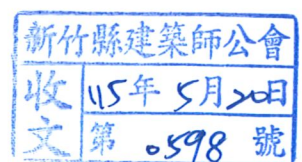 新竹縣建築師公會
收文
115年5月20日
第0598號